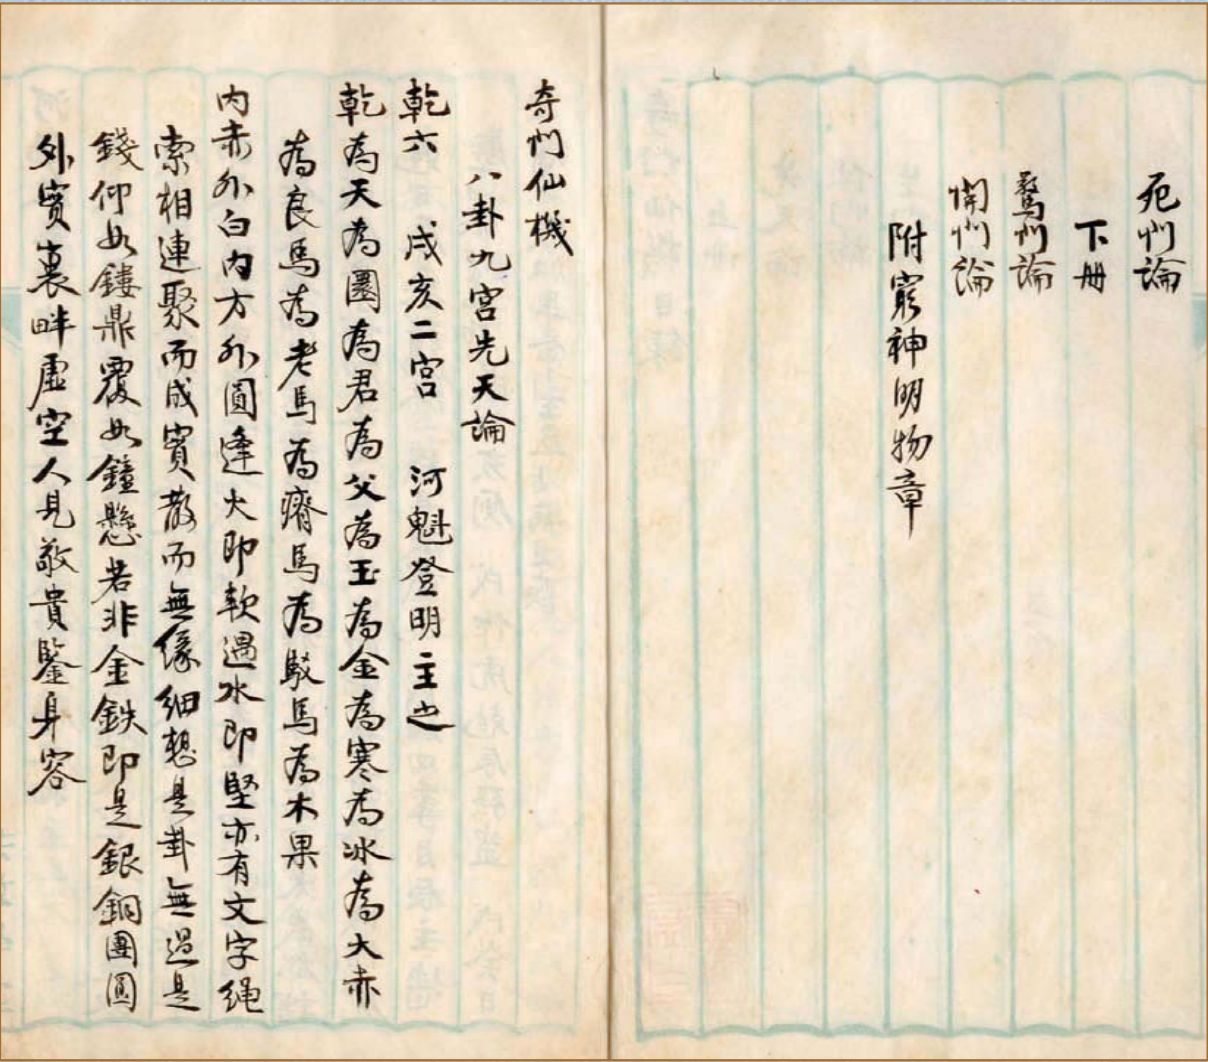 死門論
下册
驚門論
開門論
附窮神明物章
奇門仙機
八卦九宮先天論
乾六 戌亥二宮 河魁登明主之
乾為天為圜為君為父為玉為金為寒為冰為大赤
為良馬為老馬為瘠馬為駁馬為木果
内赤外白内方外圓逢火即軟遇水即堅亦有文字绳
索相連聚而成賓散而無緣細想是卦無過是
錢仰如鏤鼎覆如鐘懸若非金鉄即是銀銅團圓
外實裏畔虛空人見敬貴鑒身容